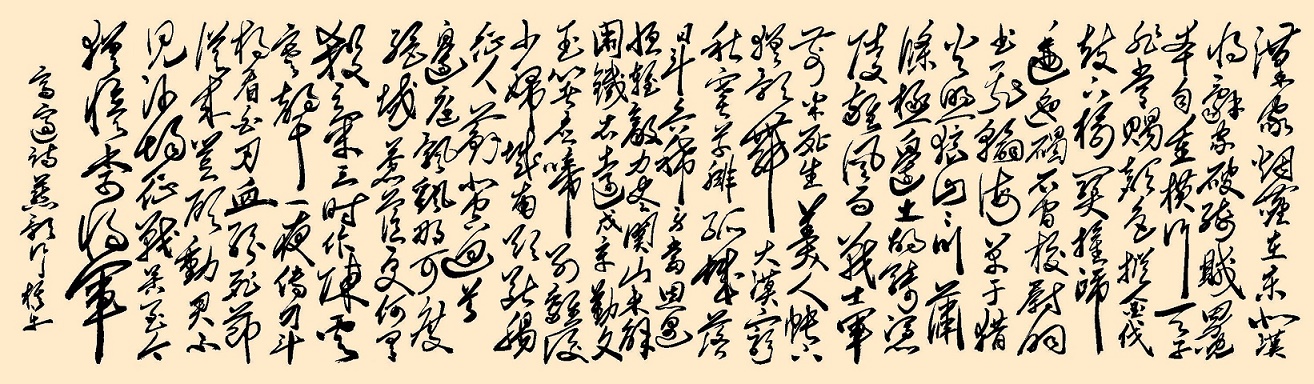 漢家烟塵在東北漢
將辭家破殘賊男兒
本自重橫行天子
非常賜顏色摐金伐
鼓下榆關旌旆
逶迤碣石間校尉羽
書飛瀚海單于獵
火照狼山山川蕭
條極邊土胡騎憑
陵雜風雨戰士軍
前半死生美人帳下
猶歌舞大漠窮
秋塞草腓孤城落
日斗兵稀身當恩遇
恒輕敵力盡關山未解
圍鐵衣遠戍辛勤久
玉箸應啼別離後
少婦城南欲斷腸
征人薊北空回首
邊庭飄颻那可度
絕域蒼茫更何有
殺氣三時作陣雲
寒聲一夜傳刁斗
相看白刃血紛死節
從來豈顧勳君不
見沙場征戰苦至今
猶憶李將軍
高適詩燕歌行